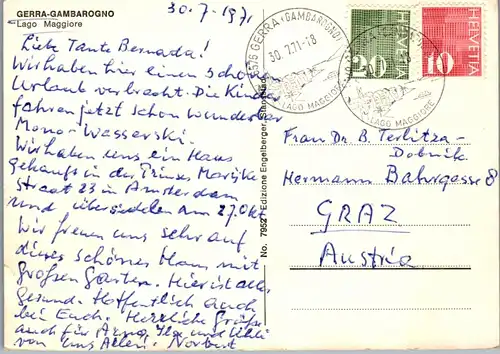 GERRA-GAMBAROGNO
Lago Maggiore
30.7-1971
Liebe Tante Bernada!
Wir haben hier einen schönen
Urlaub verbracht. Die Kinder
fahren jetzt schon wunderbar
Mono-Wasserski.
Wir haben uns ein Haus
gekauft in der Prinses Marijke
Straat 23 in Amsterdam
und übersiedeln am 27.Okt
Wir freuen uns sehr auf
dieses schönes Haus mit
großen Garten. Hier ist alles
gesund. Hoffentlich auch
bei Euch. Herzliche Grüße
auch für Arno, Ilse und
von uns Allen! Norbert
No. 79527 Edizione Engelberger,
6576 GERRA (GAMBAROGNO)
30.7.71-18
LAGO MAGGIORE
HELVETIA
20
HELVETIA
10
LAGO MAGGIORE
Frau Dr. B. Terlitza-
Dobnik
Hermann Bahrgasse 8
GRAZ
Austria